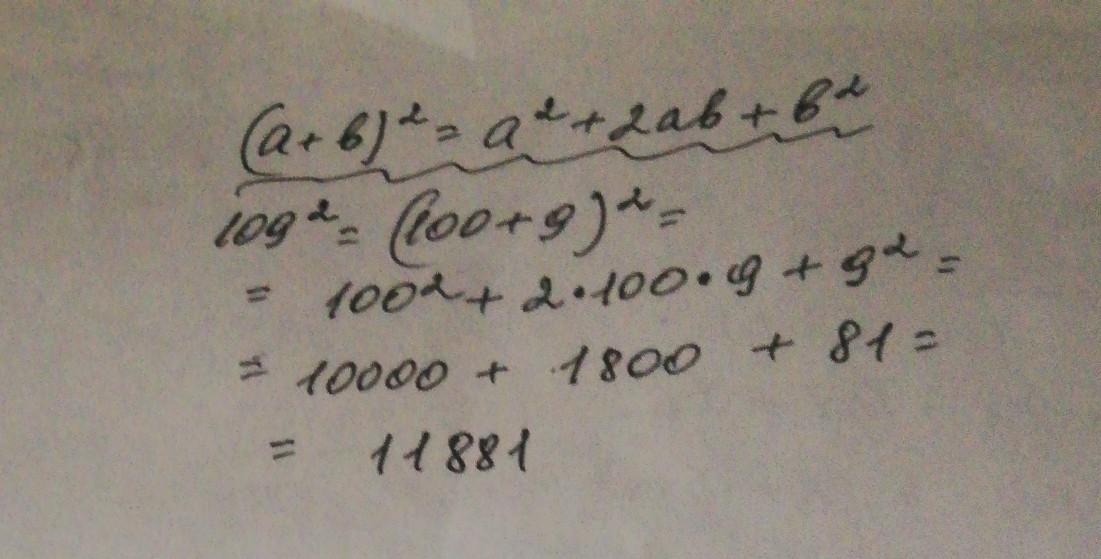 (a+b)²= a²+2ab+b²
109²= (100+9)²=
= 100²+ 2·100·9 + 9² =
= 10000 + 1800 + 81 =
= 11881